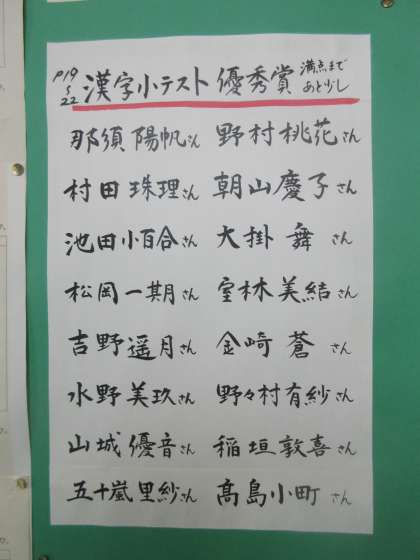 P19〜22 漢字小テスト 優秀賞 満点まであと少し
那須陽帆さん 野村桃花さん
村田珠理さん 朝山慶子さん
池田小百合さん 大掛舞さん
松岡一期さん 室林美結さん
吉野遥月さん 金崎蒼さん
水野美玖さん 野々村有紗さん
山城優音さん 稲垣敦喜さん
五十嵐里紗さん 髙島小町さん